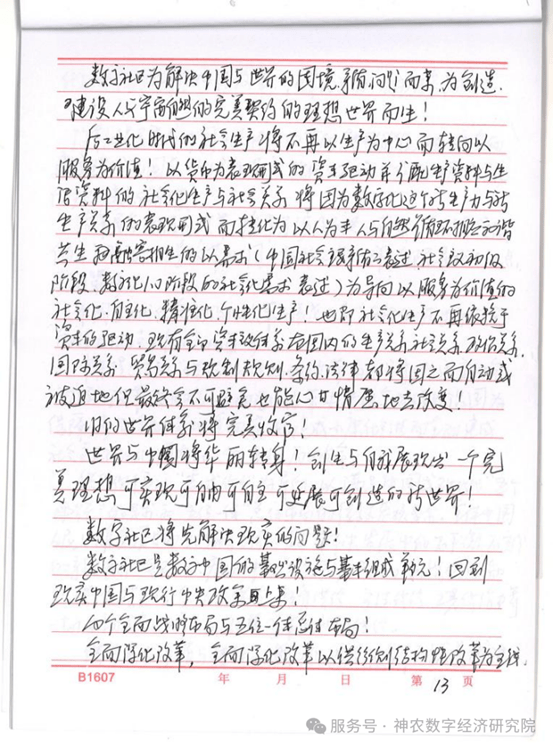 数字社区为解决中国与世界的困境矛盾问题而来,为创造、
建设人与宇宙自然的完美契约的理想世界而生!
后工业化时代的社会生产将不再以生产为中心而转向以
服务为价值!以货币为表现形式的资本驱动并分配生产资料与生
活资料的社会化生产与社会关系将因为数字化这个新生产力与新
生产关系的表现形式而转化为以人为本人与自然循环和谐
共生 的以需求(中国社会主要矛盾之表述,社会主义初级
阶段、数字化 阶段的社会化需求表述)为导向以服务为价值的
社会化、自主化、精准化、个性化生产!也即社会化生产不再依赖于
资本的驱动,现有全部资本关系体系在国内的生产关系社会关系、政治关系、
国际关系、贸易关系与现制规则、条约、法律都将因之而自动或
被迫地但最终会不可避免也能心甘情愿地去改变!
旧的世界体系将完美收官!
世界与中国将华丽转身!创生与自我展现出一个完
美理想可实现可自由可自主可延展可创造的新世界!
数字社区将先解决现实的问题!
数字社区是数字中国的基础设施与基本组成单元!回到
现实中国与现行中央改革上来!
四个全面战略布局与五位一体总体布局!
全面深化改革,全面深化改革以供给侧结构性改革为主线,
B1607 年 月 日 第 13 页
服务号·神农数字经济研究院